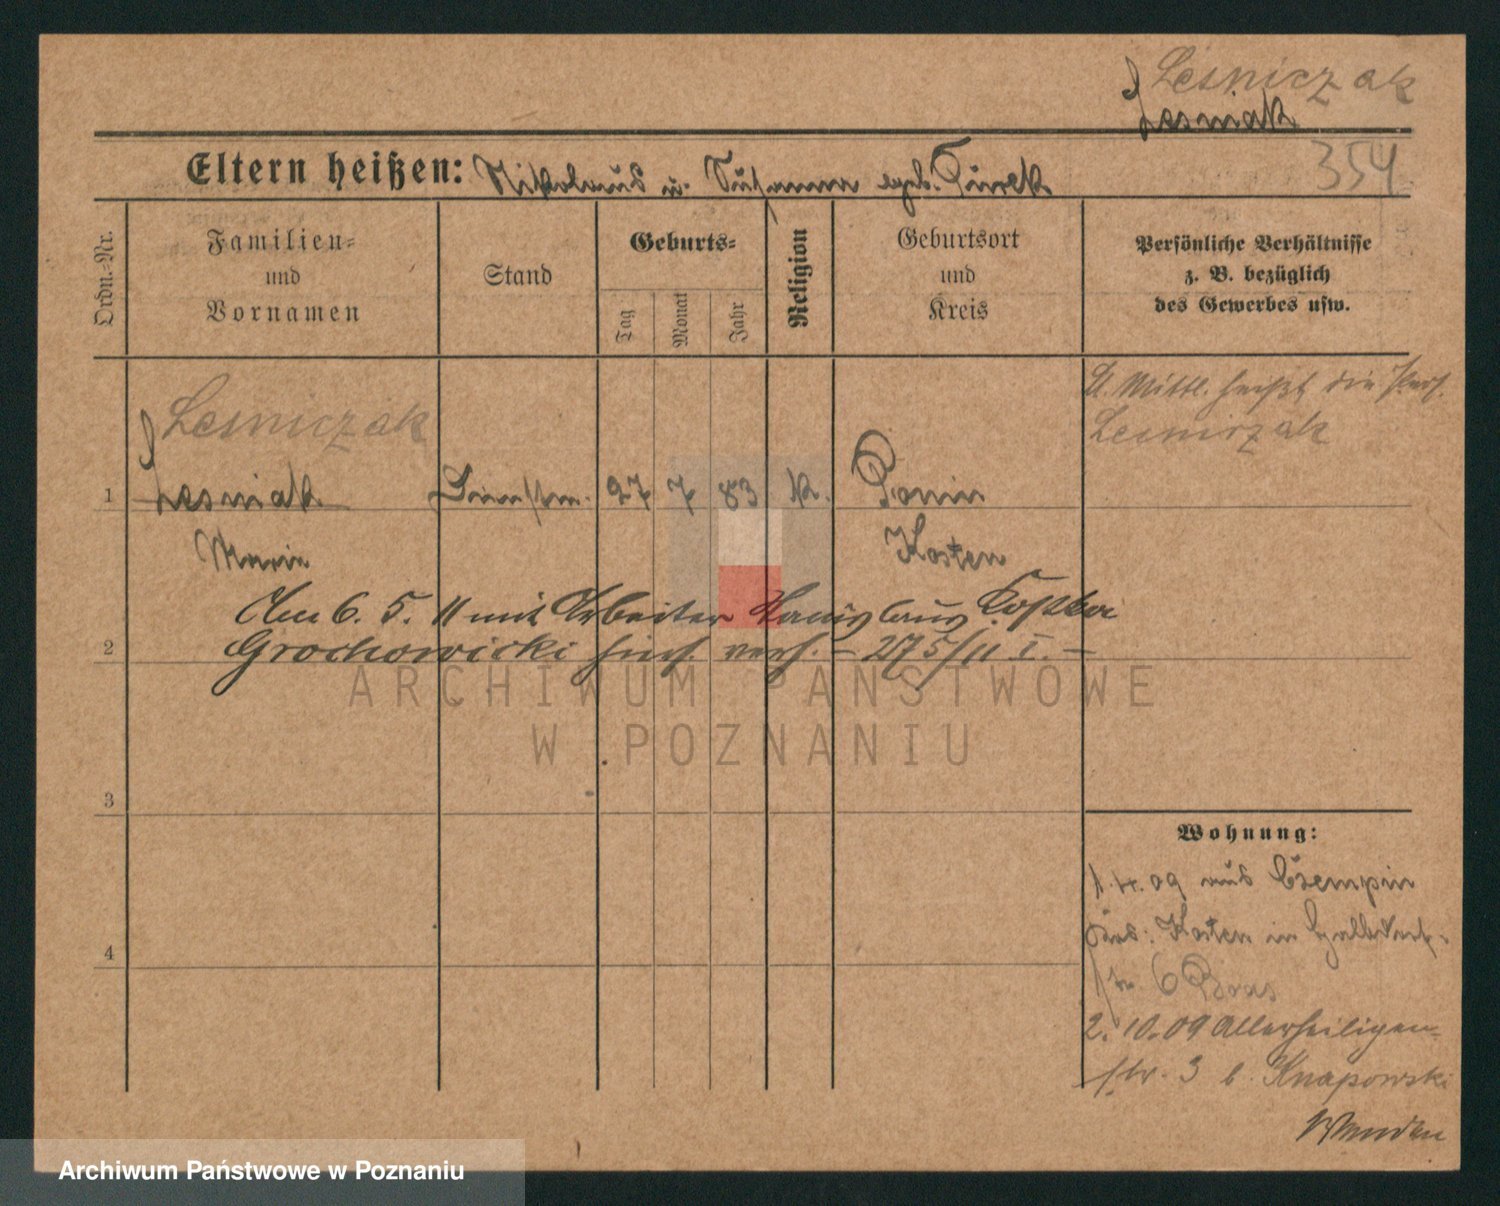 Lesniczak
Lesniak
354
Eltern heißen: Nikolaus u. Susanna geb. Turek
Ordn.-Nr.
Familien-
und
Vornamen
Stand
Geburts-
Tag
Monat
Jahr
Religion
Geburtsort
und
Kreis
Persönliche Verhältnisse
z. B. bezüglich
des Gewerbes usw.
Lesniczak
lt. Mittl. heißt die Pers.
Lesniczak
1 Lesniak Dienstm. 27 7 83 k. Ponin
Marie Kosten
Am 6. 5. 11 mit Arbeiter Kostka
2 Grochowicki hier verh. – 275/11 I. –
3
4
Wohnung:
1.4.09 aus Czempin
Kosten in
str. 6
2. 10. 09 Allerheiligen-
str. 3 b. Knapowski
Wenden
ARCHIWUM PAŃSTWOWE
W POZNANIU
Archiwum Państwowe w Poznaniu